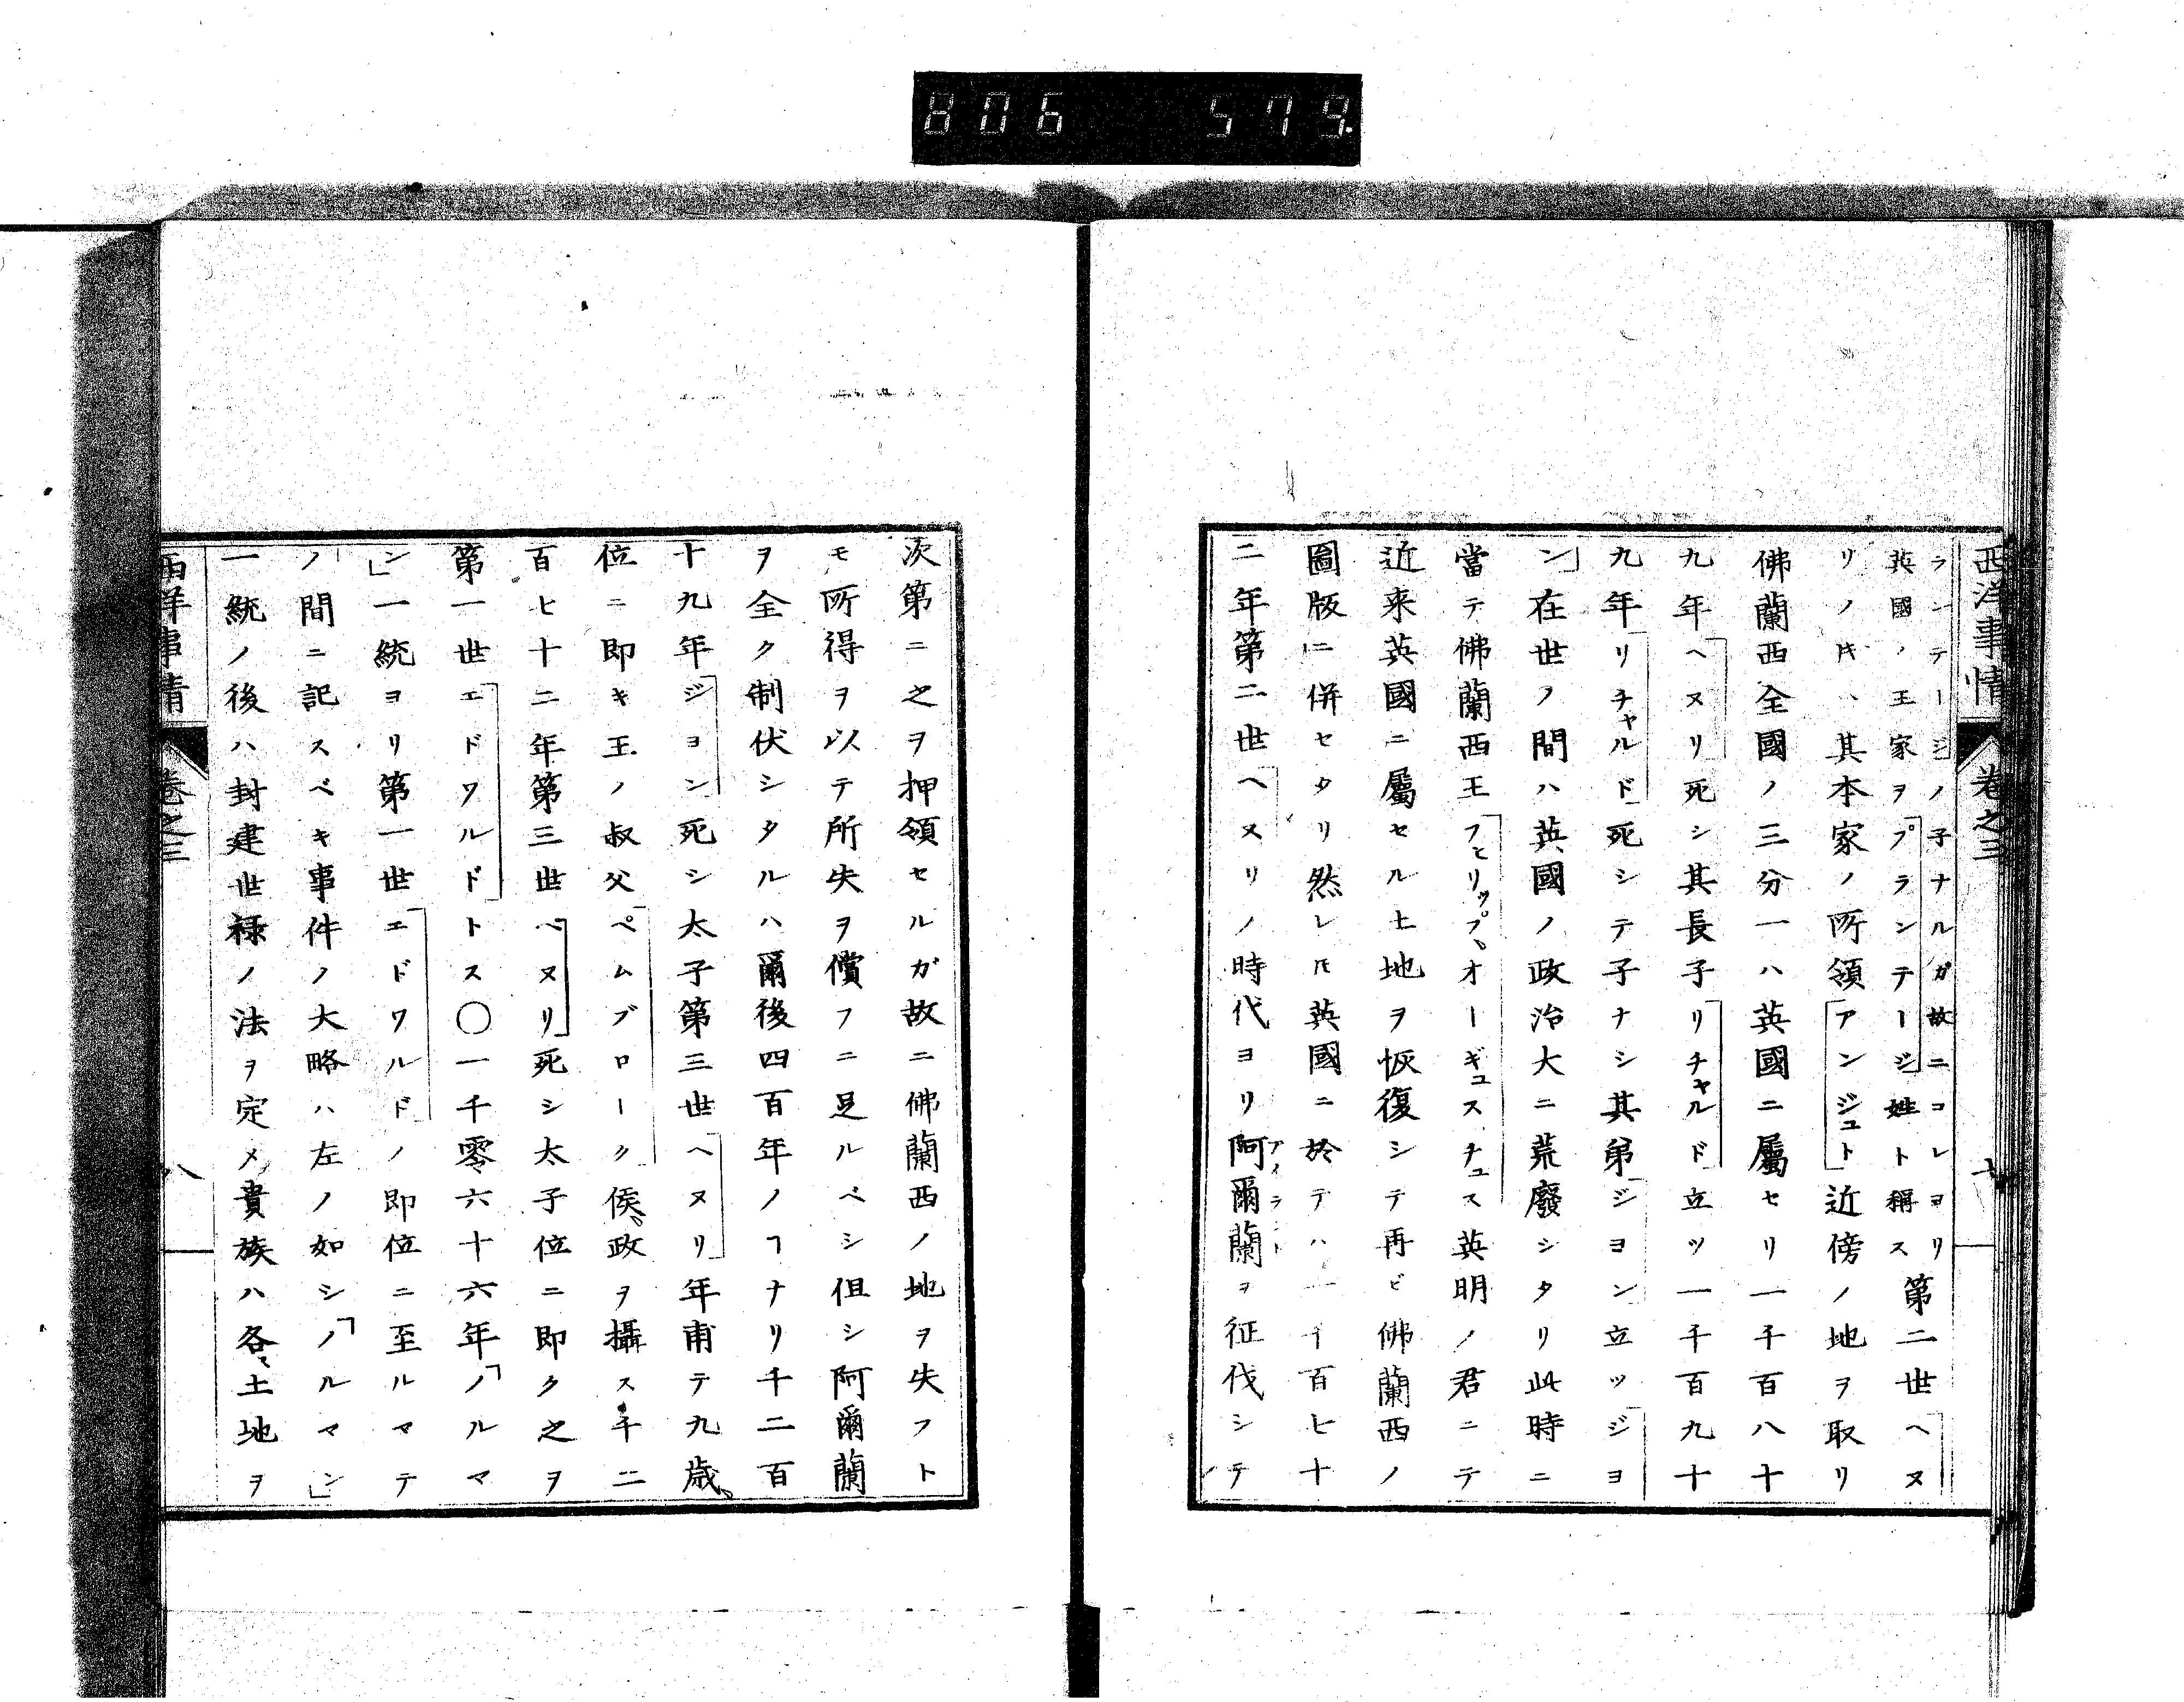 806 579.
西洋事情 卷之三 七
ランテージノ子ナルガ故ニコレヨリ
英國ノ王家ヲプランテージ姓ト稱ス
第二世ヘヌ
リノ時ハ其本家ノ所領アンジュト近傍ノ地ヲ取リ
佛蘭西全國ノ三分一ハ英國ニ屬セリ一千百八十
九年ヘヌリ死シ其長子リチャルド立ツ一千百九十
九年リチャルド死シテ子ナシ其弟ジヨン立ツジヨ
ン在世ノ間ハ英國ノ政治大ニ荒廢シタリ此時ニ
當テ佛蘭西王フヒリップ、オーギュスチュス英明ノ君ニテ
近来英國ニ屬セル土地ヲ恢復シテ再ビ佛蘭西ノ
圖版ニ併セタリ然レ𪜈英國ニ於テハ一千百七十
二年第二世ヘヌリノ時代ヨリ阿爾蘭ヲ征伐シテ
次第ニ之ヲ押領セルガ故ニ佛蘭西ノ地ヲ失フト
モ所得ヲ以テ所失ヲ償フニ足ルベシ但シ阿爾蘭
ヲ全ク制伏シタルハ爾後四百年ノヿナリ千二百
十九年ジヨン死シ太子第三世ヘヌリ年甫テ九歳、
位ニ即キ王ノ叔父ペムブローク侯、政ヲ攝ス千二
百七十二年第三世ヘヌリ死シ太子位ニ即ク之ヲ
第一世エドワルドトス〇一千零六十六年「ノルマ
ン」一統ヨリ第一世エドワルドノ即位ニ至ルマテ
ノ間ニ記スベキ事件ノ大略ハ左ノ如シ「ノルマン」
一統ノ後ハ封建世禄ノ法ヲ定メ貴族ハ各々土地ヲ
西洋事情 卷之三 八